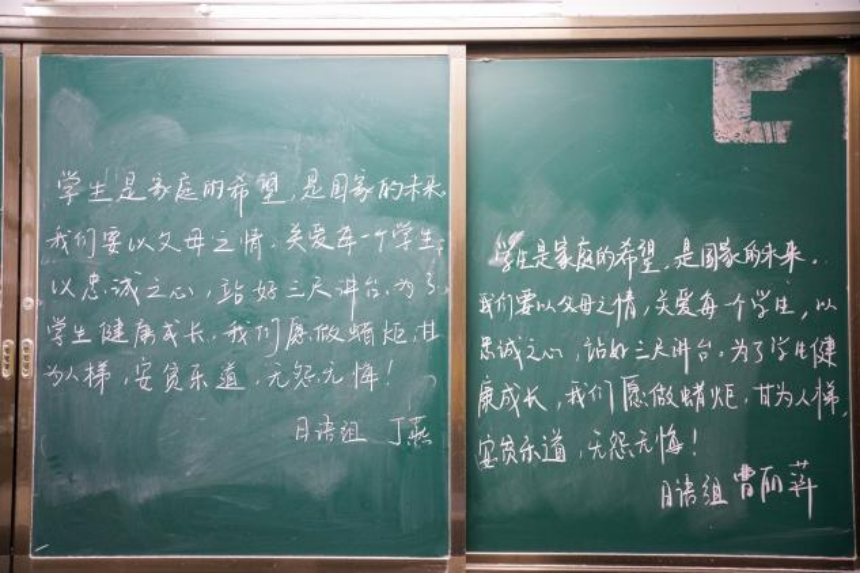 学生是家庭的希望,是国家的未来。
我们要以父母之情,关爱每一个学生;
以忠诚之心,站好三尺讲台。为了
学生健康成长,我们愿做蜡炬,甘
为人梯,安贫乐道,无怨无悔!
日语组 丁燕
学生是家庭的希望,是国家的未来。
我们要以父母之情,关爱每一个学生,以
忠诚之心,站好三尺讲台。为了学生健
康成长,我们愿做蜡炬,甘为人梯,
安贫乐道,无怨无悔!
日语组 曹丽